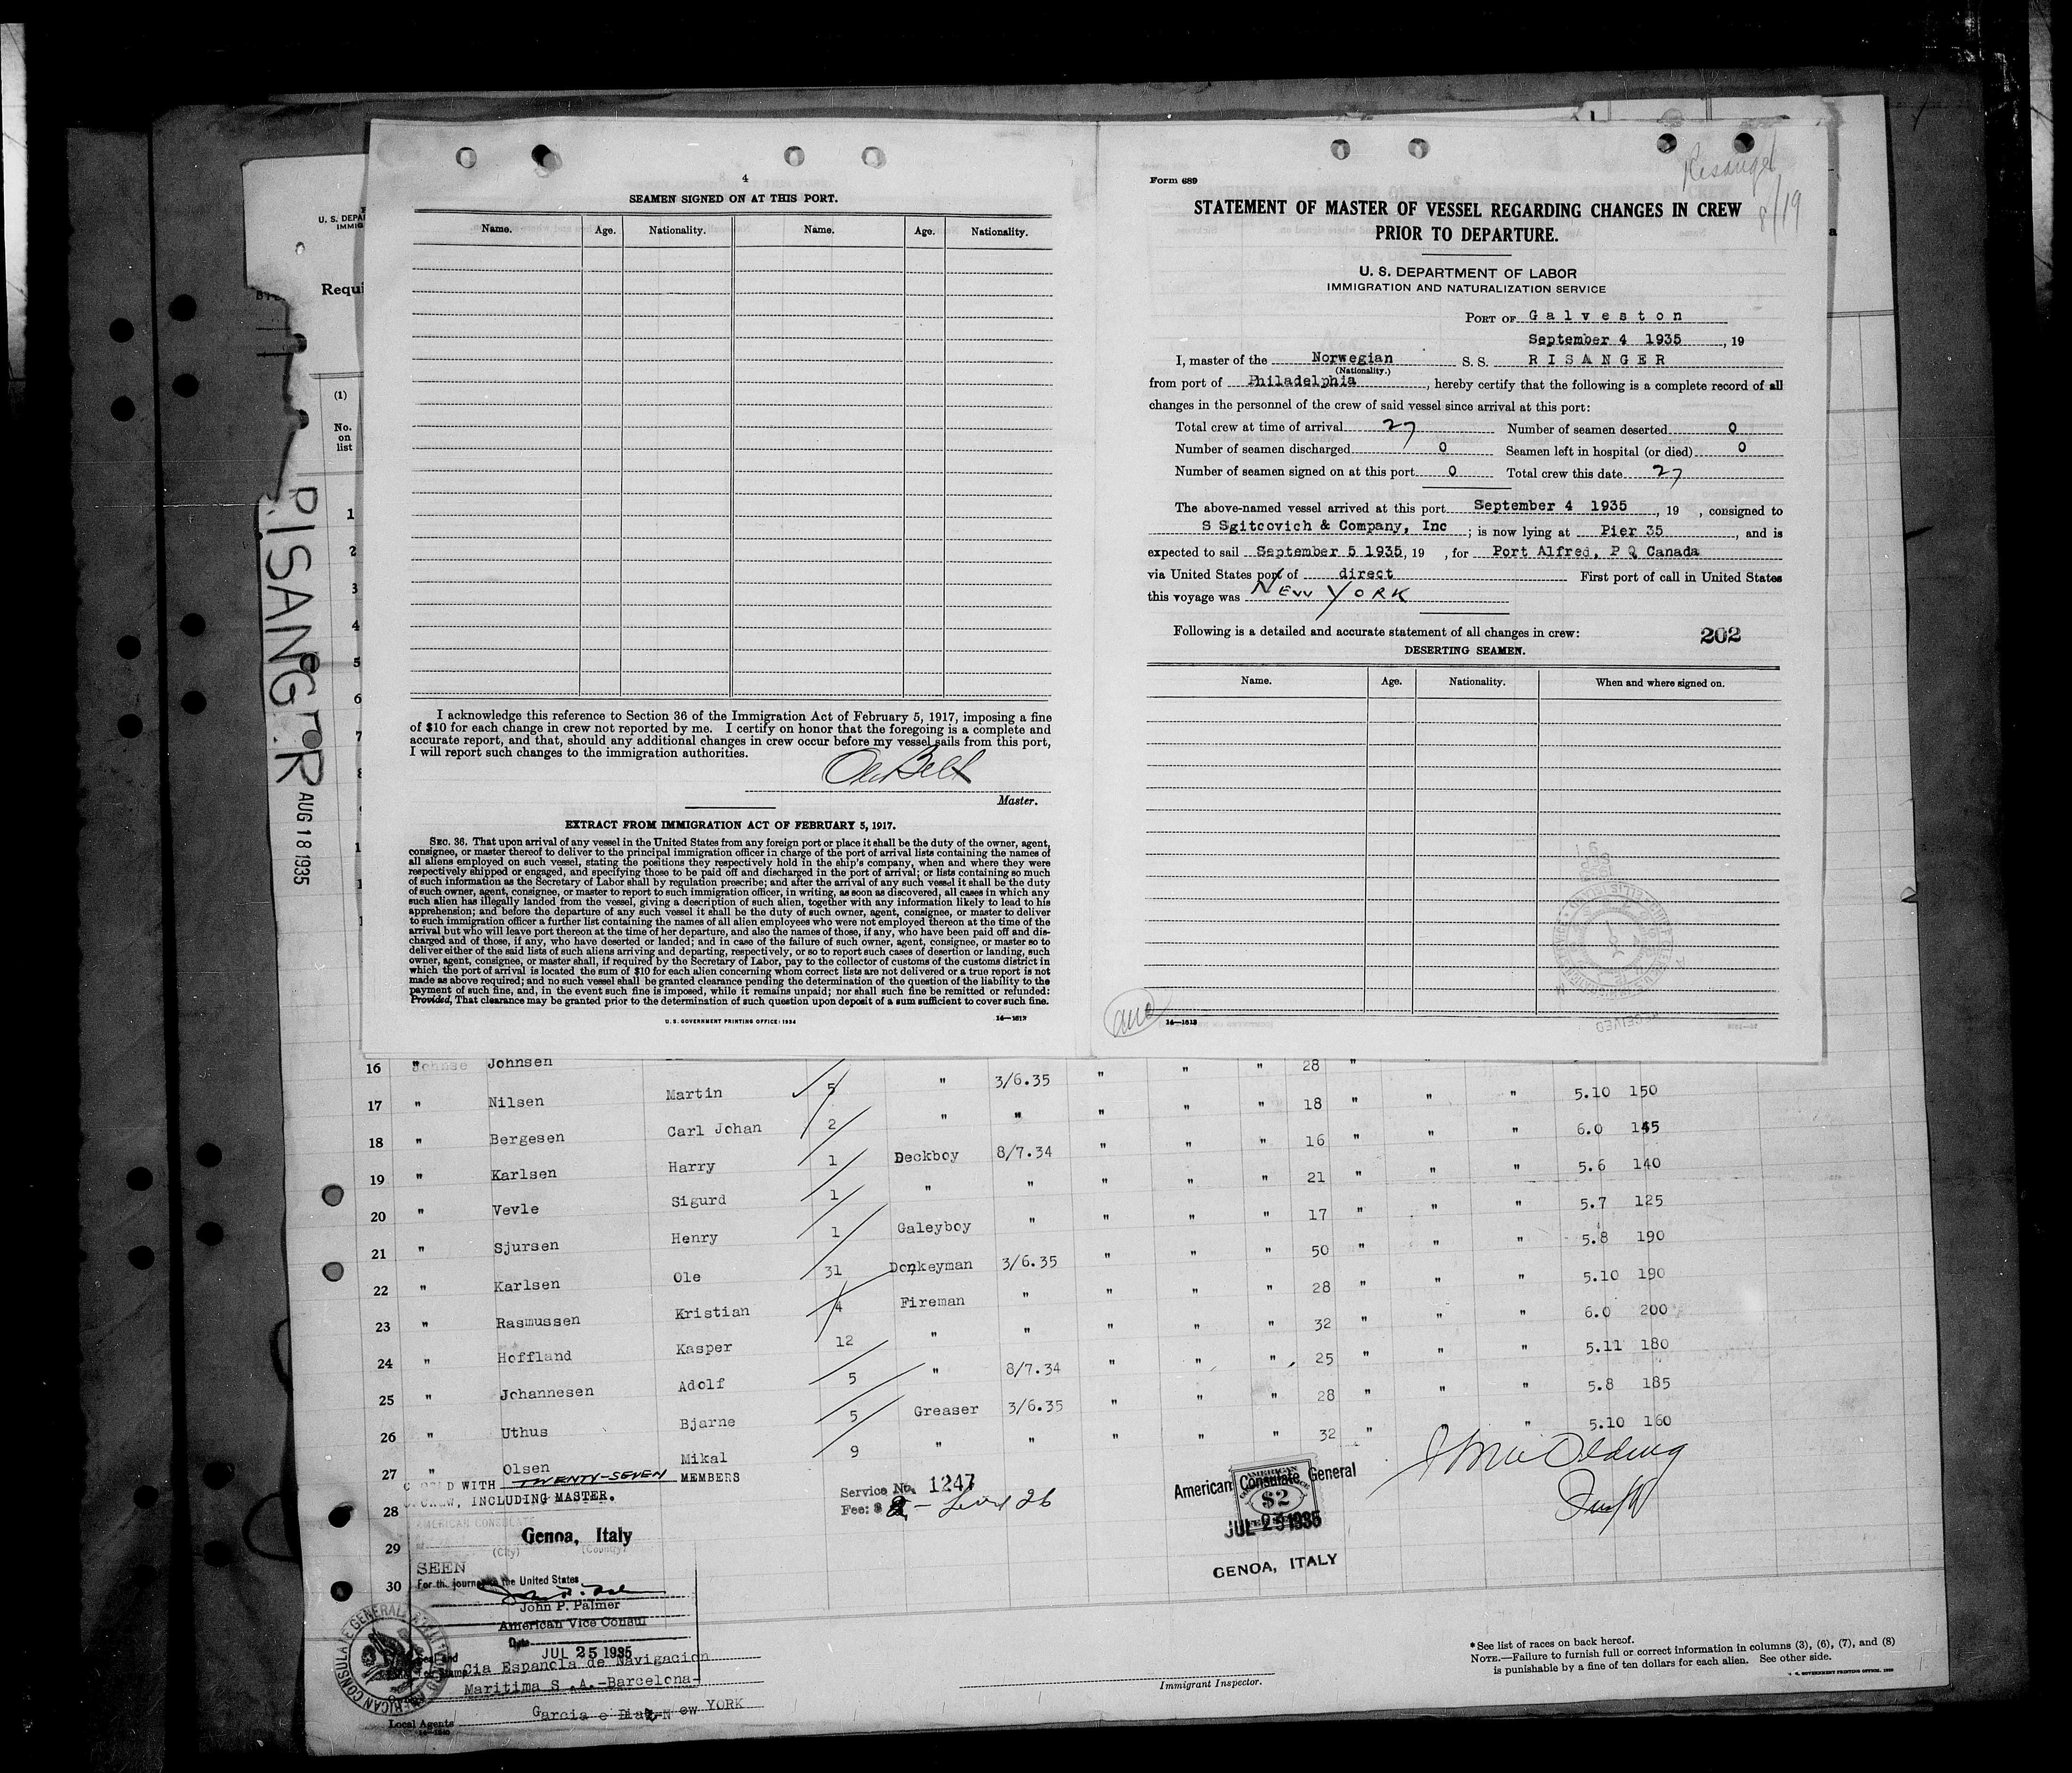 4
SEAMEN SIGNED ON AT THIS PORT.
Name. Age. Nationality. Name. Age. Nationality.
I acknowledge this reference to Section 36 of the Immigration Act of February 5, 1917, imposing a fine
of $10 for each change in crew not reported by me. I certify on honor that the foregoing is a complete and
accurate report, and that, should any additional changes in crew occur before my vessel sails from this port,
I will report such changes to the immigration authorities.
Master.
EXTRACT FROM IMMIGRATION ACT OF FEBRUARY 5, 1917.
SEC. 36. That upon arrival of any vessel in the United States from any foreign port or place it shall be the duty of the owner, agent,
consignee, or master thereof to deliver to the principal immigration officer in charge of the port of arrival lists containing the names of
all aliens employed on such vessel, stating the positions they respectively hold in the ship's company, when and where they were
respectively shipped or engaged, and specifying those to be paid off and discharged in the port of arrival; or lists containing so much
of such information as the Secretary of Labor shall by regulation prescribe; and after the arrival of any such vessel it shall be the duty
of such owner, agent, consignee, or master to report to such immigration officer, in writing, as soon as discovered, all cases in which any
such alien has illegally landed from the vessel, giving a description of such alien, together with any information likely to lead to his
apprehension; and before the departure of any such vessel it shall be the duty of such owner, agent, consignee, or master to deliver
to such immigration officer a further list containing the names of all alien employees who were not employed thereon at the time of the
arrival but who will leave port thereon at the time of her departure, and also the names of those, if any, who have been paid off and dis-
charged and of those, if any, who have deserted or landed; and in case of the failure of such owner, agent, consignee, or master so to
deliver either of the said lists of such aliens arriving and departing, respectively, or so to report such cases of desertion or landing, such
owner, agent, consignee, or master shall, if required by the Secretary of Labor, pay to the collector of customs of the customs district in
which the port of arrival is located the sum of $10 for each alien concerning whom correct lists are not delivered or a true report is not
made as above required; and no such vessel shall be granted clearance pending the determination of the question of the liability to the
payment of such fine, and, in the event such fine is imposed, while it remains unpaid; nor shall such fine be remitted or refunded:
Provided, That clearance may be granted prior to the determination of such question upon deposit of a sum sufficient to cover such fine.
U. S. GOVERNMENT PRINTING OFFICE: 1934 14—1613
Risanger
8/19
Form 689
STATEMENT OF MASTER OF VESSEL REGARDING CHANGES IN CREW
PRIOR TO DEPARTURE.
U. S. DEPARTMENT OF LABOR
IMMIGRATION AND NATURALIZATION SERVICE
PORT OF Galveston
September 4 1935, 19
I, master of the Norwegian S. S. RISANGER
(Nationality.)
from port of Philadelphia, hereby certify that the following is a complete record of all
changes in the personnel of the crew of said vessel since arrival at this port:
Total crew at time of arrival 27 Number of seamen deserted 0
Number of seamen discharged 0 Seamen left in hospital (or died) 0
Number of seamen signed on at this port 0 Total crew this date 27
The above-named vessel arrived at this port September 4 1935, 19 , consigned to
S Sgitcovich & Company, Inc; is now lying at Pier 35, and is
expected to sail September 5 1935, 19 , for Port Alfred, P Q Canada
via United States port of direct First port of call in United States
this voyage was NEW YORK
Following is a detailed and accurate statement of all changes in crew: 202
DESERTING SEAMEN.
Name. Age. Nationality. When and where signed on.
14—1613
U. S. DEPA
IMMIG
Requi
(1)
No.
on
list
1
2
3
4
5
6
7
RISANGER
AUG 18 1935
16 " Johnsen
17 " Nilsen Martin 5 " 3/6.35 " " " 28 " 5.10 150
18 " Bergesen Carl Johan 2 " " " " " 18 " " " 6.0 145
19 " Karlsen Harry 1 Deckboy 8/7.34 " " " 16 " " " 5.6 140
20 " Vevle Sigurd 1 " " " " " 21 " " " 5.7 125
21 " Sjursen Henry 1 Galeyboy " " " " 17 " " " 5.8 190
22 " Karlsen Ole 31 Donkeyman 3/6.35 " " " 50 " " " 5.10 190
23 " Rasmussen Kristian 4 Fireman " " " " 28 " " " 6.0 200
24 " Hoffland Kasper 12 " " " " " 32 " " " 5.11 180
25 " Johannesen Adolf 5 " 8/7.34 " " " 25 " " " 5.8 185
26 " Uthus Bjarne 5 Greaser 3/6.35 " " " 28 " " " 5.10 160
27 " Olsen Mikal 9 " " " " " 32 " " "
WITH TWENTY-SEVEN MEMBERS
CREW, INCLUDING MASTER.
28
29
30
Service No. 1247
Fee: $ 2
American Consulate General
AMERICAN
$2
JUL 25 1935
GENOA, ITALY
AMERICAN CONSULATE
Genoa, Italy
(City) (Country)
SEEN
For the journey to the United States
John P. Palmer
American Vice Consul
Date JUL 25 1935
Seal and
Stamp
Cia Espanola de Navigacion
Maritima S.A.-Barcelona-
Local Agents Garcia e Diaz-New YORK
Immigrant Inspector.
* See list of races on back hereof.
NOTE.—Failure to furnish full or correct information in columns (3), (6), (7), and (8)
is punishable by a fine of ten dollars for each alien. See other side.